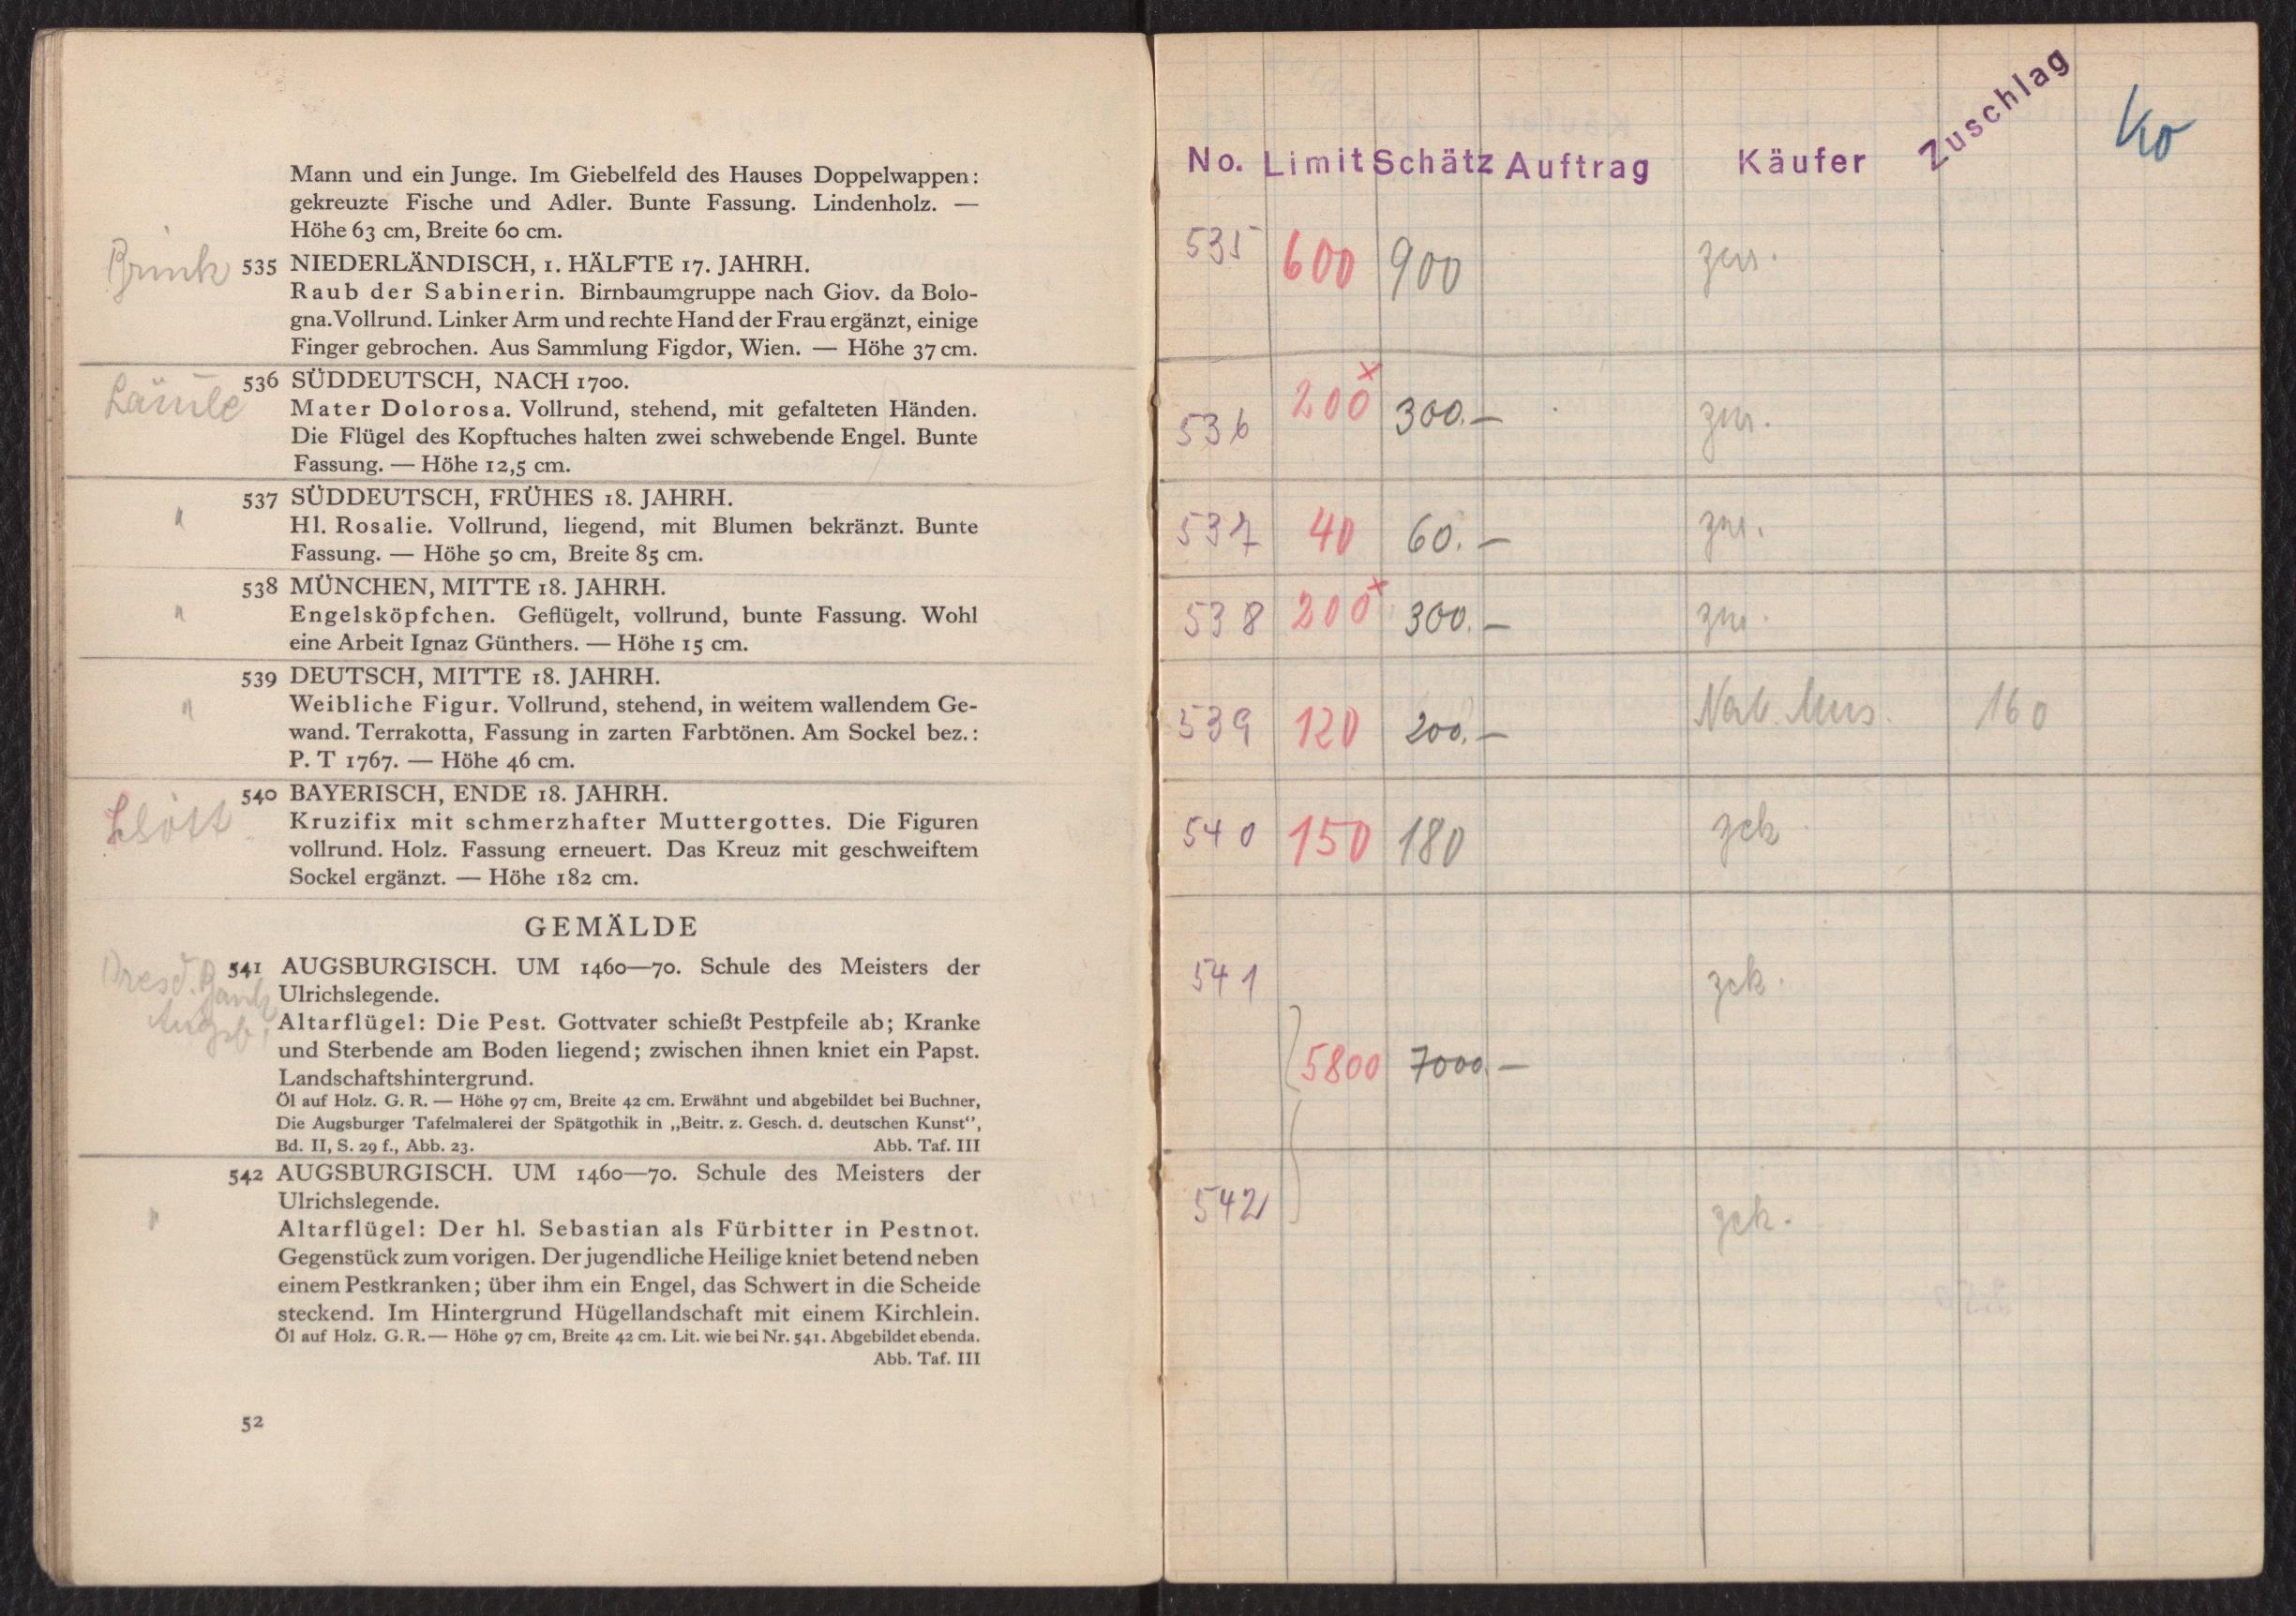 Mann und ein Junge. Im Giebelfeld des Hauses Doppelwappen:
gekreuzte Fische und Adler. Bunte Fassung. Lindenholz. —
Höhe 63 cm, Breite 60 cm.
Brink 535 NIEDERLÄNDISCH, 1. HÄLFTE 17. JAHRH.
Raub der Sabinerin. Birnbaumgruppe nach Giov. da Bolo-
gna. Vollrund. Linker Arm und rechte Hand der Frau ergänzt, einige
Finger gebrochen. Aus Sammlung Figdor, Wien. — Höhe 37 cm.
536 SÜDDEUTSCH, NACH 1700.
Mater Dolorosa. Vollrund, stehend, mit gefalteten Händen.
Die Flügel des Kopftuches halten zwei schwebende Engel. Bunte
Fassung. — Höhe 12,5 cm.
537 SÜDDEUTSCH, FRÜHES 18. JAHRH.
" Hl. Rosalie. Vollrund, liegend, mit Blumen bekränzt. Bunte
Fassung. — Höhe 50 cm, Breite 85 cm.
538 MÜNCHEN, MITTE 18. JAHRH.
" Engelsköpfchen. Geflügelt, vollrund, bunte Fassung. Wohl
eine Arbeit Ignaz Günthers. — Höhe 15 cm.
539 DEUTSCH, MITTE 18. JAHRH.
" Weibliche Figur. Vollrund, stehend, in weitem wallendem Ge-
wand. Terrakotta, Fassung in zarten Farbtönen. Am Sockel bez.:
P. T 1767. — Höhe 46 cm.
540 BAYERISCH, ENDE 18. JAHRH.
Kruzifix mit schmerzhafter Muttergottes. Die Figuren
vollrund. Holz. Fassung erneuert. Das Kreuz mit geschweiftem
Sockel ergänzt. — Höhe 182 cm.
GEMÄLDE
Dresd. Bank 541 AUGSBURGISCH. UM 1460—70. Schule des Meisters der
Ulrichslegende.
Augsb. Altarflügel: Die Pest. Gottvater schießt Pestpfeile ab; Kranke
und Sterbende am Boden liegend; zwischen ihnen kniet ein Papst.
Landschaftshintergrund.
Öl auf Holz. G. R. — Höhe 97 cm, Breite 42 cm. Erwähnt und abgebildet bei Buchner,
Die Augsburger Tafelmalerei der Spätgothik in „Beitr. z. Gesch. d. deutschen Kunst“,
Bd. II, S. 29 f., Abb. 23. Abb. Taf. III
542 AUGSBURGISCH. UM 1460—70. Schule des Meisters der
Ulrichslegende.
" Altarflügel: Der hl. Sebastian als Fürbitter in Pestnot.
Gegenstück zum vorigen. Der jugendliche Heilige kniet betend neben
einem Pestkranken; über ihm ein Engel, das Schwert in die Scheide
steckend. Im Hintergrund Hügellandschaft mit einem Kirchlein.
Öl auf Holz. G. R. — Höhe 97 cm, Breite 42 cm. Lit. wie bei Nr. 541. Abgebildet ebenda.
Abb. Taf. III
52
No. Limit Schätz Auftrag Käufer Zuschlag
535 600 900 zur.
536 200 x 300.— zur.
537 40 60.— zur.
538 200 x 300.— zur.
539 120 200.— Nat. Mus. 160
540 150 180 zck
541 zck.
5800 7000.—
542 zck.